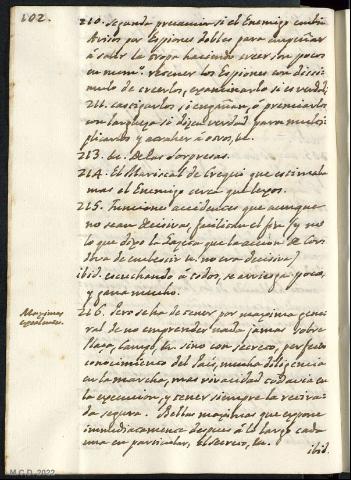 102.
210. Segunda precaucion si el Enemigo embia
Avisos por Espiones dobles para engañar
á salir la tropa haciendo creer son pocos
en num.º retener los Espiones con dissi-
mulo de creerlos, examinarlo si es verdad,
211. castigarlos si engañan, ó premiarlos
con largueza si dizen verdad para multi-
plicarlos y atraher á otros, &c.
213. &c. De las Sorpresas.
214. El Mariscal de Crequi que estimaba
mas el Enemigo cerca que lexos.
215. Funciones accidentes que aunque
no sean decisivas, facilitan el fin (y no
lo que dixo la Gazeta que la accion de
no era decisiva)
ibid. escuchando á todos, se arriesga poco,
y gana mucho.
Maximas
excelentes.
216. Pero se ha de tener por maxima gene-
ral de no emprender nada jamas sobre
Plaza, Campo, &c. sino con secreto, perfecto
conocimiento del Pais, mucha diligencia
en la marcha, mas vivacidad todavia en
la execucion, y tener siempre la retira-
da segura. Bellas maximas que expone
immediatamente despues á lo largo cada
una en particular, el Secreto, &c.
ibid.
M.C.D. 2022